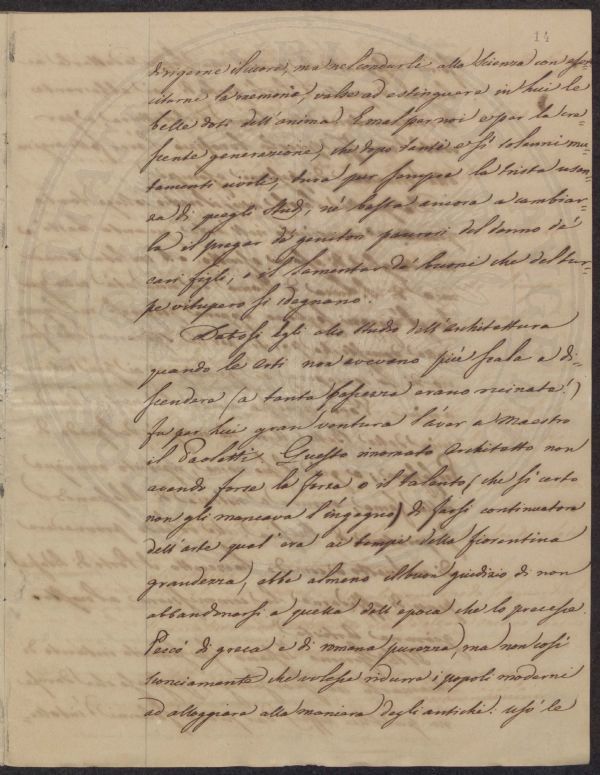 14
dirigerne il cuore, ma nel condurli alla Scienza con eser=
citarne la memoria, valse ad estinguere in lui le
belle doti dell'anima! E mal per noi e per la cre=
scente generazione, che dopo tanti e sì solenni mu=
tamenti civili, dura pur sempre la trista usan=
za di quegli studj, nè basta ancora a cambiar=
la il pregar de' genitori paurosi del danno de'
cari figli, e il lamentar de' buoni che del tur=
pe vitupero si sdegnano.
Datosi Egli allo studio dell'architettura
quando le Arti non avevano più scala a di=
scendere (a tanta bassezza erano ruinate!)
fu per lui gran ventura l'aver a Maestro
il Paoletti. Questo Architetto non
avendo forse la forza o il talento (che sì certo
non gli mancava l'ingegno) di farsi continuatore
dell'arte qual'era ai tempi della fiorentina
grandezza, ebbe almeno il buon giudizio di non
abbandonarsi a quella dell'epoca che lo precesse.
Peccò di greca e di romana purezza, ma non così
sconciamente che volesse ridurre i popoli moderni
ad alloggiare alla maniera degli antichi: usò le